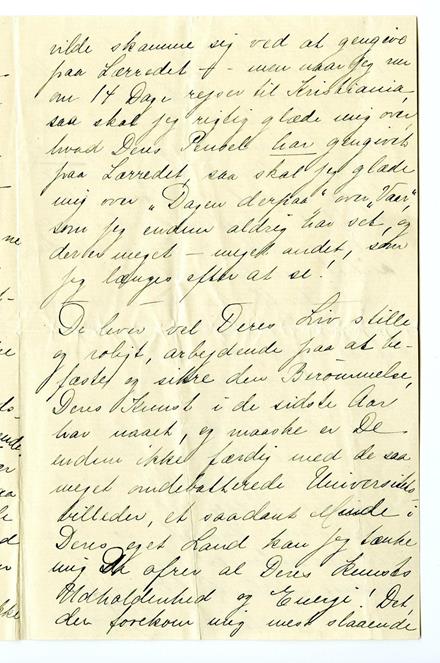 vilde skamme sig ved at gengive
paa Lærredet – men naar jeg nu
om 14 Dage rejser til Kristiania,
saa skal jeg rigtig glæde mig over,
hvad Deres Pensel har gengivet
paa Lærredet, saa skal jeg glæde
mig over "Dagen derpaa" over "Vaar",
som jeg endnu aldrig har set, og
derover meget – meget andet, som
jeg længes efter at se!
De lever vel Deres Liv stille
og roligt, arbejdende paa at be-
fæste og sikre den Berömmelse,
Deres Kunst i de sidste Aar
har naaet, og maaske er De
endnu ikke færdig med de saa
meget omdebatterede Universitets
billeder, et saadant Minde i
Deres eget Land kan jeg tænke
mig af al Deres Kunsts
Udholdenhed og Energi! Det,
der forekom mig mest slaaende